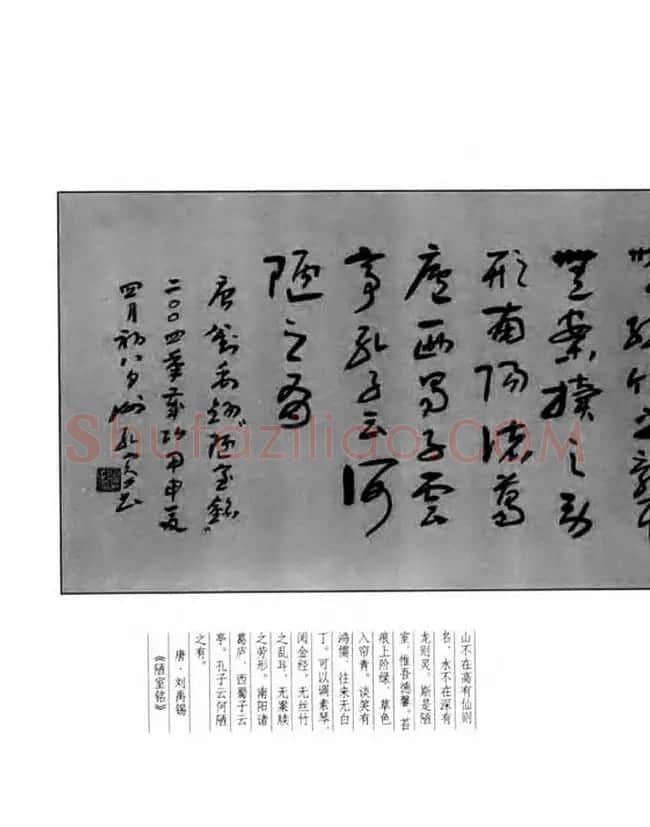 無絲竹之亂耳
無案牘之勞
形南陽諸葛
廬西蜀子雲
亭孔子云何
陋之有
唐劉禹錫"陋室銘"
二〇〇四年歲次甲申夏
四月初八日
山不在高有仙则
名，水不在深有
龙则灵。斯是陋
室，惟吾德馨。苔
痕上阶绿，草色
入帘青。谈笑有
鸿儒，往来无白
丁。可以调素琴，
阅金经。无丝竹
之乱耳，无案牍
之劳形。南阳诸
葛庐，西蜀子云
亭。孔子云何陋
之有。
唐·刘禹锡
《陋室铭》
Shufaziliao.COM